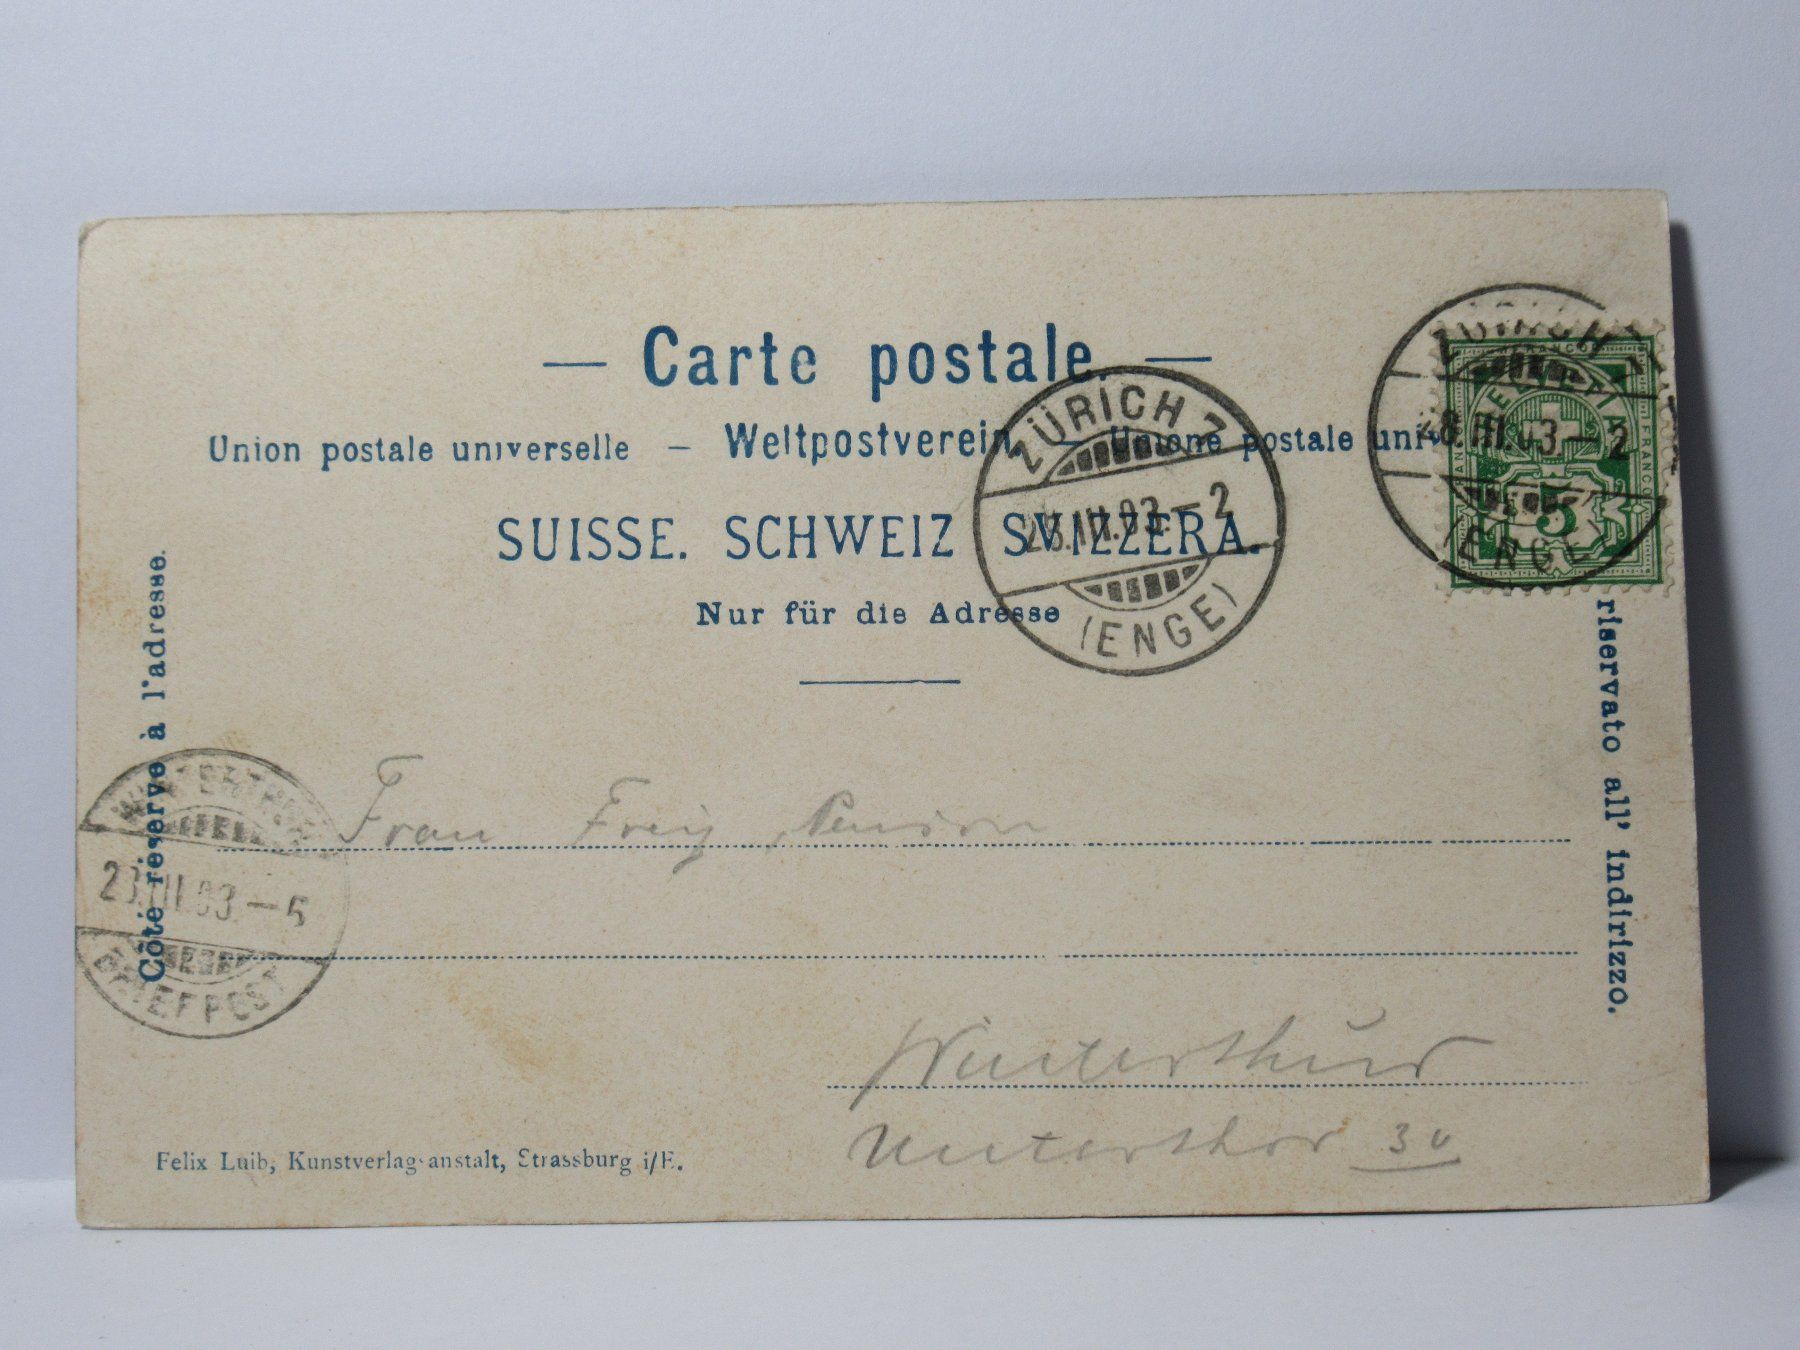 — Carte postale. —
Union postale universelle — Weltpostverein — Unione postale univ
SUISSE. SCHWEIZ SVIZZERA.
Nur für die Adresse
Côté réservé à l'adresse.
riservato all' indirizzo.
ZÜRICH 7
28.III.03.–2
(ENGE)
ZÜRICH 7
28.III.03.–2
(ENGE)
FRANCO
HELVETIA
FRANCO
5
WINTERTHUR
28.III.03.–5
BRIEFPOST
Frau Frey, Pension
Winterthur
Unterthor
Felix Luib, Kunstverlagsanstalt, Strassburg i/E.